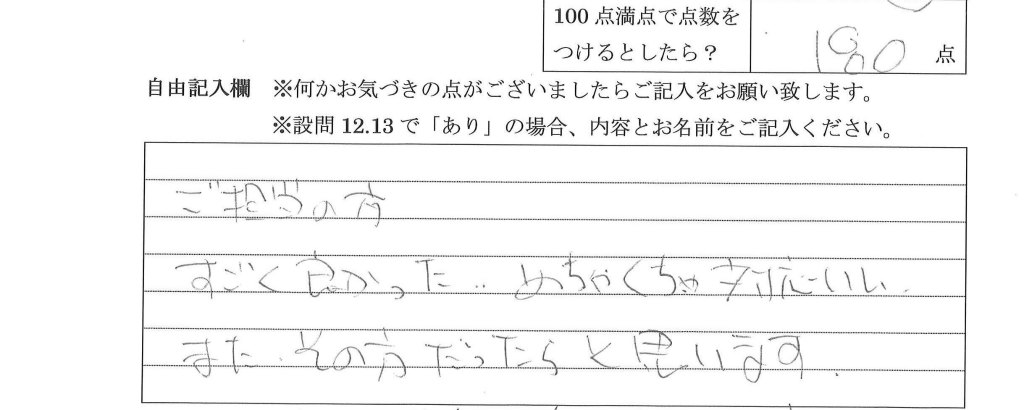 100 点満点で点数を
つけるとしたら？ 100 点
自由記入欄 ※何かお気づきの点がございましたらご記入をお願い致します。
※設問 12.13 で「あり」の場合、内容とお名前をご記入ください。
ご担当の方
すごく良かった.. めちゃくちゃ対応いい.
また.その方だったらと思います.